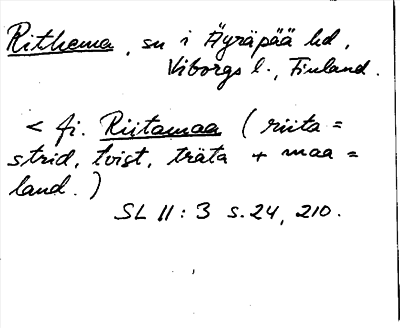 Rithema, sn i Äyräpää hd,
Viborgs l., Finland.
< fi. Riitamaa (riita =
strid, tvist, träta + maa =
land.)
SL II : 3 s. 24, 210.